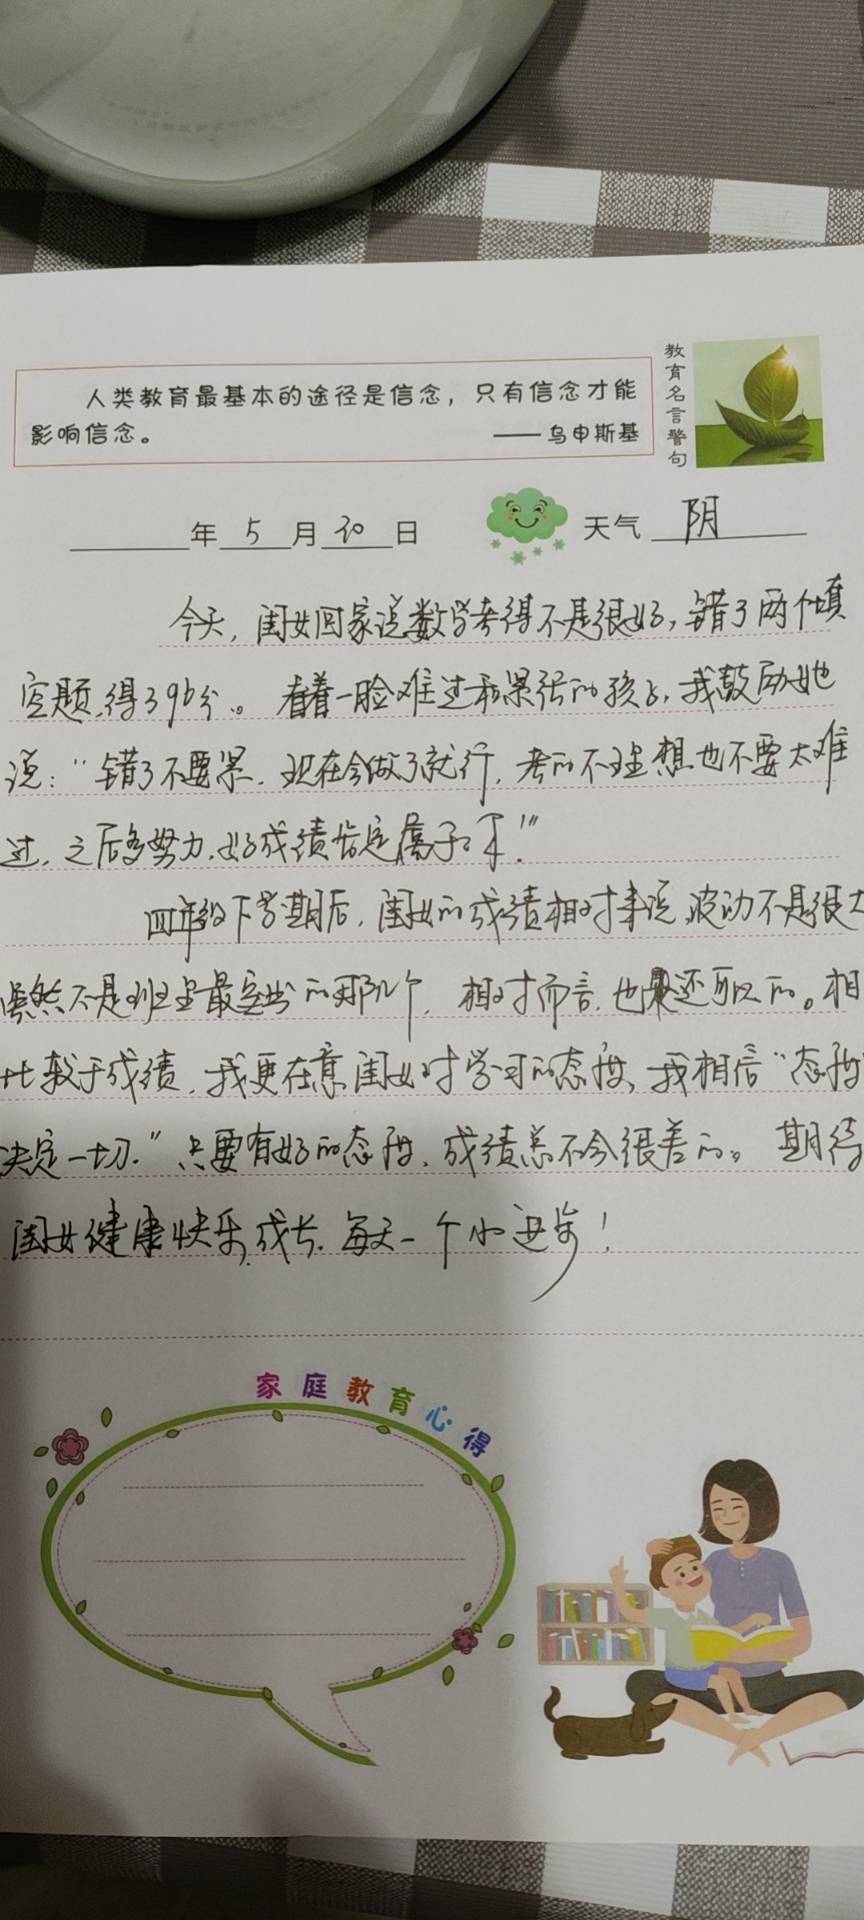 人类教育最基本的途径是信念，只有信念才能
影响信念。
——乌申斯基
教育名言警句
年 5 月 30 日 天气 阴
今天，闺女回家说数学考得不是很好，错了两个填
空题，得了96分。看着一脸难过和紧张的孩子，我鼓励她
说：“错了不要紧，现在会做了就行，考的不理想也不要太难
过，之后多努力，好成绩肯定属于你！”
四年级下学期后，闺女的成绩相对来说波动不是很大
虽然不是班里最突出的那几个，相对而言，也还可以的。相
比较于成绩，我更在意闺女对学习的态度，我相信“态度
决定一切。”只要有好的态度，成绩总不会很差的。期待
闺女健康快乐成长，每天一个小进步！
家庭教育心得